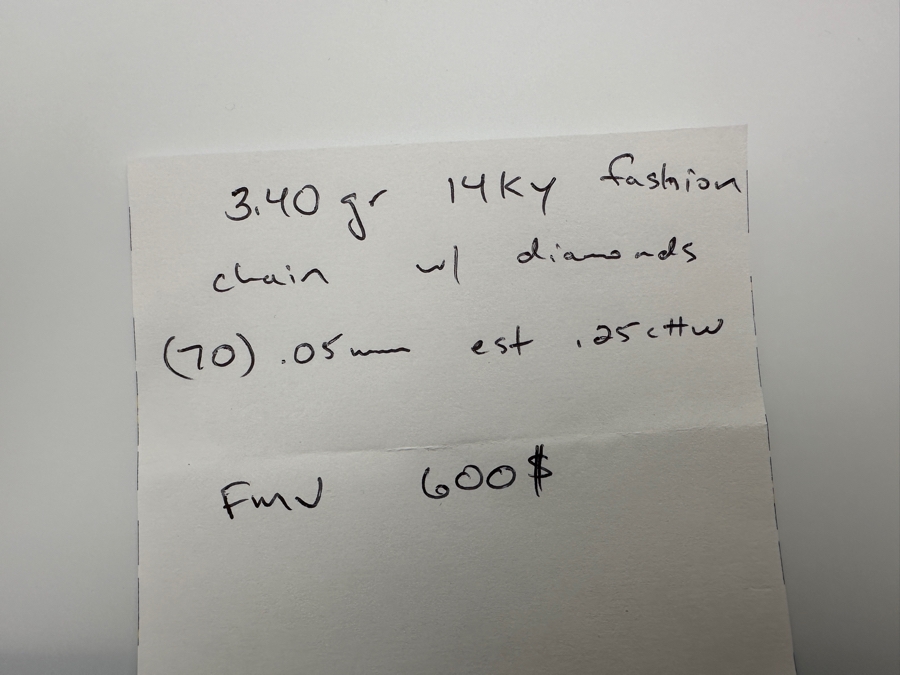 3.40 gr 14Ky fashion
chain w/ diamonds
(70) .05mm est .25cttw
FMV 600$